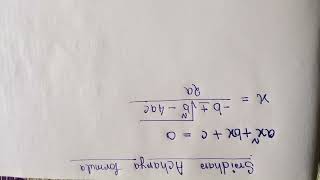 Sridhar Acharya formula
ax² + bx + c = 0
x = -b ± √b² - 4ac / 2a